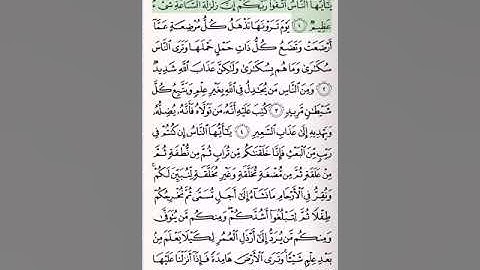 يَٰٓأَيُّهَا ٱلنَّاسُ ٱتَّقُوا۟ رَبَّكُمْ إِنَّ زَلْزَلَةَ ٱلسَّاعَةِ شَىْءٌ
عَظِيمٌ ١ يَوْمَ تَرَوْنَهَا تَذْهَلُ كُلُّ مُرْضِعَةٍ عَمَّآ
أَرْضَعَتْ وَتَضَعُ كُلُّ ذَاتِ حَمْلٍ حَمْلَهَا وَتَرَى ٱلنَّاسَ
سُكَٰرَىٰ وَمَا هُم بِسُكَٰرَىٰ وَلَٰكِنَّ عَذَابَ ٱللَّهِ شَدِيدٌ
٢ وَمِنَ ٱلنَّاسِ مَن يُجَٰدِلُ فِى ٱللَّهِ بِغَيْرِ عِلْمٍ وَيَتَّبِعُ كُلَّ
شَيْطَٰنٍ مَّرِيدٍ ٣ كُتِبَ عَلَيْهِ أَنَّهُۥ مَن تَوَلَّاهُ فَأَنَّهُۥ يُضِلُّهُۥ
وَيَهْدِيهِ إِلَىٰ عَذَابِ ٱلسَّعِيرِ ٤ يَٰٓأَيُّهَا ٱلنَّاسُ إِن كُنتُمْ فِى
رَيْبٍ مِّنَ ٱلْبَعْثِ فَإِنَّا خَلَقْنَٰكُم مِّن تُرَابٍ ثُمَّ مِن نُّطْفَةٍ ثُمَّ
مِنْ عَلَقَةٍ ثُمَّ مِن مُّضْغَةٍ مُّخَلَّقَةٍ وَغَيْرِ مُخَلَّقَةٍ لِّنُبَيِّنَ لَكُمْ
وَنُقِرُّ فِى ٱلْأَرْحَامِ مَا نَشَآءُ إِلَىٰٓ أَجَلٍ مُّسَمًّى ثُمَّ نُخْرِجُكُمْ
طِفْلًا ثُمَّ لِتَبْلُغُوٓا۟ أَشُدَّكُمْ وَمِنكُم مَّن يُتَوَفَّىٰ
وَمِنكُم مَّن يُرَدُّ إِلَىٰٓ أَرْذَلِ ٱلْعُمُرِ لِكَيْلَا يَعْلَمَ مِنۢ
بَعْدِ عِلْمٍ شَيْـًٔا وَتَرَى ٱلْأَرْضَ هَامِدَةً فَإِذَآ أَنزَلْنَا عَلَيْهَا